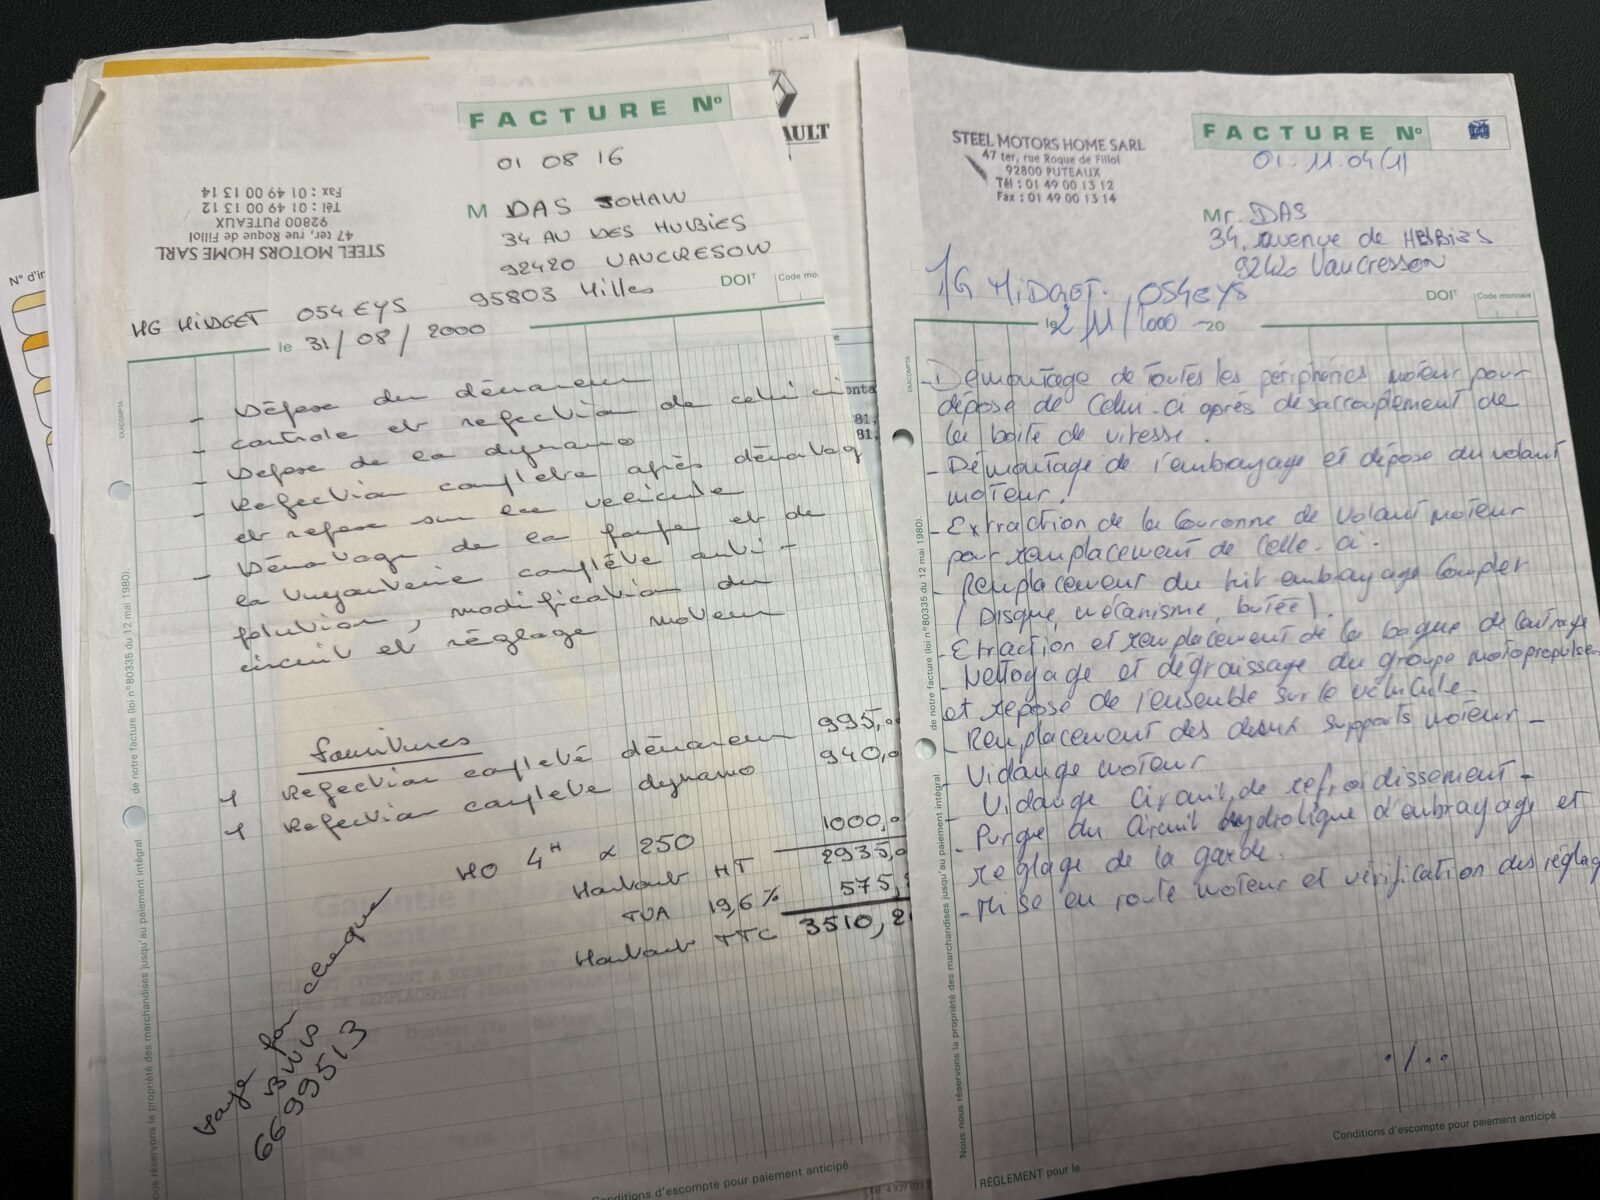 FACTURE Nº
01 08 16
STEEL MOTORS HOME SARL
47 ter, rue Roque de Fillol
92800 PUTEAUX
Tél : 01 49 00 13 12
Fax : 01 49 00 13 14
M DAS JOHAW
34 AV DES HUBIES
92420 VAUCRESOW
95803 Milles
DOIT
Code mo
MG MIDGET 054 EYS
le 31/08/2000
- Dépose du démareur
- controle et refection de celui ci
- Depose de la dynamo
- Refection complète après démontag
et repose sur le veicule
- Démontage de la pompe et de
la tuyauterie complète anti-
polution, modification du
circuit et réglage moteur
fournitures
1 Refection complète démareur 995,0
1 Refection complète dynamo 940,0
MO 4H x 250 1000,0
Montant HT 2935,0
TVA 19,6% 575,
Montant TTC 3510,2
Paye par cheque
BNP
6699513
EXACOMPTA
Nous nous réservons la propriété des marchandises jusqu'au paiement intégral de notre facture (loi nº 80335 du 12 mai 1980).
Conditions d'escompte pour paiement anticipé
N° d'i
AULT
FACTURE Nº
01.11.04(1)
STEEL MOTORS HOME SARL
47 ter, rue Roque de Fillol
92800 PUTEAUX
Tél : 01 49 00 13 12
Fax : 01 49 00 13 14
Mr. DAS
34, avenue de HUBBIES
92420 Vaucresson
DOIT
Code monnaie
MG MIDGET. 054EYS
le 2/11/2000 20
- Démontage de toutes les périphéries moteur pour
dépose de celui-ci après désaccouplement de
la boite de vitesse.
- Démontage de l'embrayage et dépose du volant
moteur.
- Extraction de la couronne de volant moteur
pour remplacement de celle-ci.
- Remplacement du kit embrayage complet
(Disque, mécanisme, butée).
- Extraction et remplacement de la bague de centrage
- Nettoyage et dégraissage du groupe motopropulseu
et repose de l'ensemble sur le véhicule
- Remplacement des deux supports moteur -
- Vidange moteur
- Vidange Circuit de refroidissement -
- Purge du Circuit hydrolique d'embrayage et
reglage de la garde.
- Mise en route moteur et vérification des réglag
./..
EXACOMPTA
Nous nous réservons la propriété des marchandises jusqu'au paiement intégral de notre facture (loi nº 80335 du 12 mai 1980).
Conditions d'escompte pour paiement anticipé
RÈGLEMENT pour le